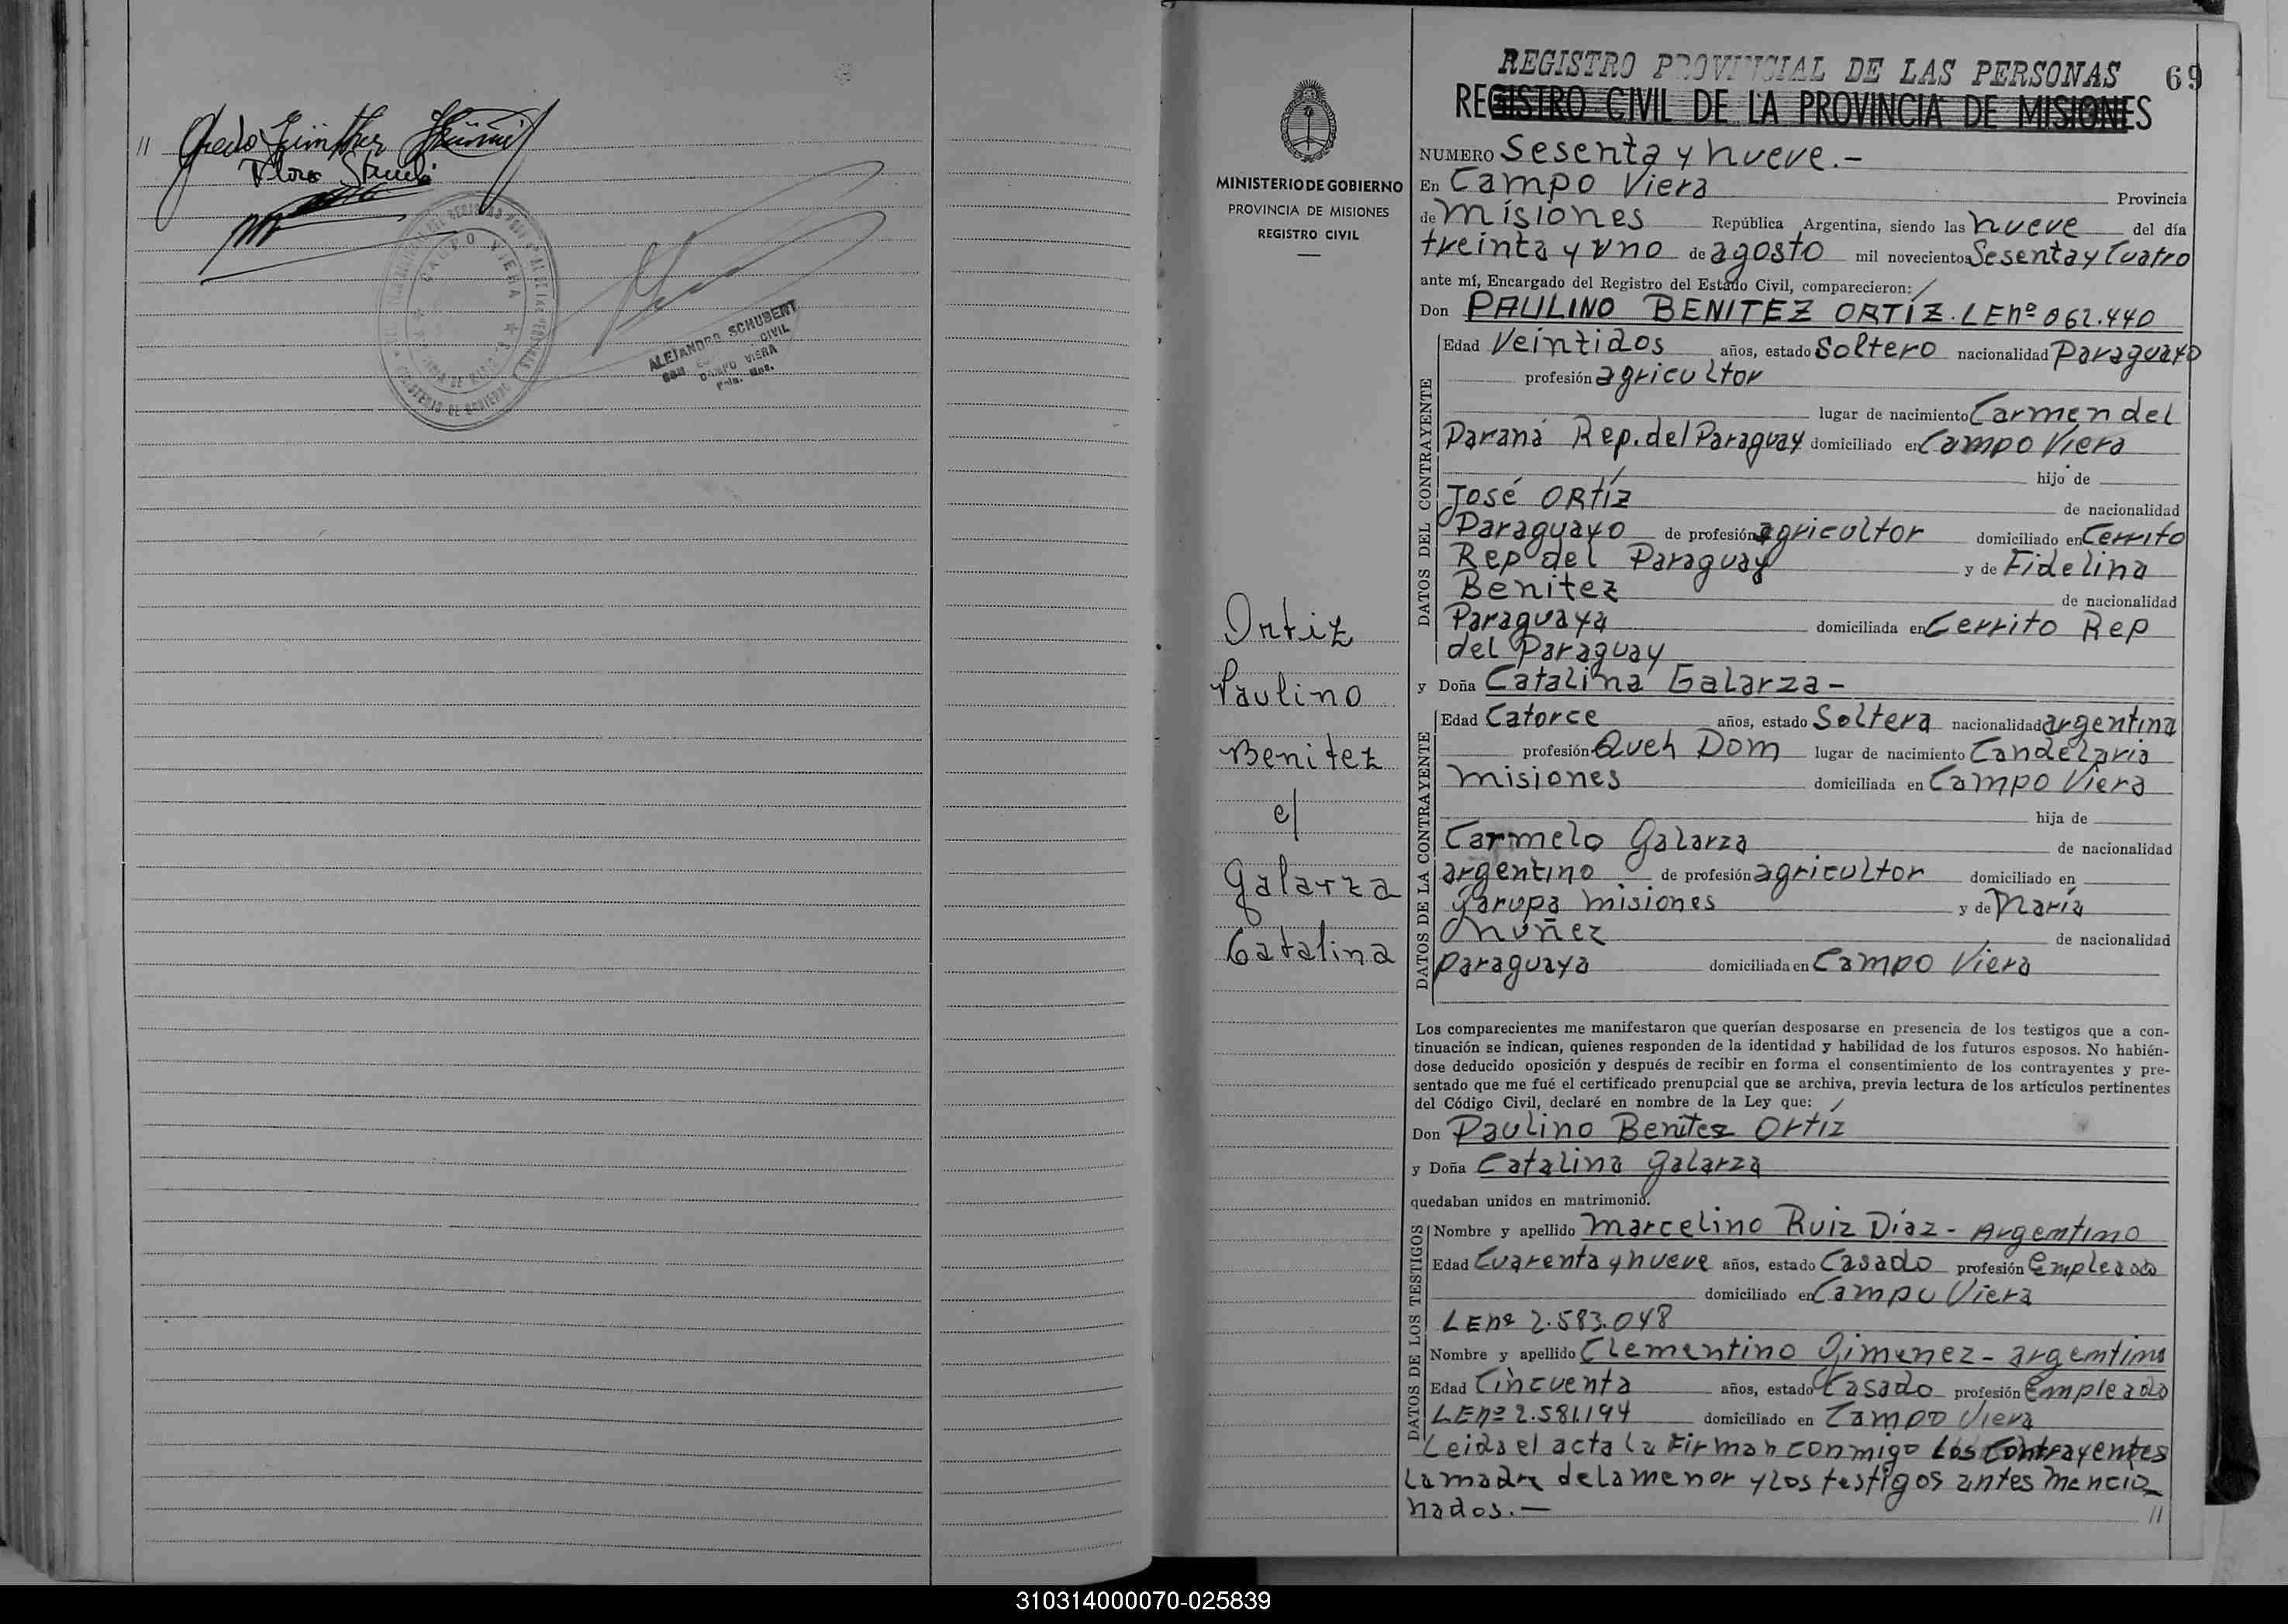 //
Flora
ALEJANDRO SCHUBERT
CIVIL
CAMPO VIERA
Pcia. Mnes.
REGISTRO PROVINCIAL DE LAS PERSONAS 69
REGISTRO CIVIL DE LA PROVINCIA DE MISIONES
MINISTERIO DE GOBIERNO
PROVINCIA DE MISIONES
REGISTRO CIVIL
Ortiz
Paulino
Benitez
c/
Galarza
Catalina
NUMERO Sesenta y nueve.-
En Campo Viera Provincia
de Misiones República Argentina, siendo las nueve del día
treinta y uno de agosto mil novecientos Sesenta y Cuatro
ante mí, Encargado del Registro del Estado Civil, comparecieron:
Don PAULINO BENITEZ ORTÍZ. LEnº 062.440
DATOS DEL CONTRAYENTE
Edad Veintidos años, estado Soltero nacionalidad Paraguayo
profesión agricultor
lugar de nacimiento Carmen del
Paraná Rep. del Paraguay domiciliado en Campo Viera
hijo de
José ORtíz
de nacionalidad
Paraguayo de profesión agricultor domiciliado en Cerrito
Rep del Paraguay y de Fidelina
Benitez
de nacionalidad
Paraguaya domiciliada en Cerrito Rep
del Paraguay
y Doña Catalina Galarza-
DATOS DE LA CONTRAYENTE
Edad Catorce años, estado Soltera nacionalidad argentina
profesión Queh Dom lugar de nacimiento Candelaria
Misiones domiciliada en Campo Viera
hija de
Carmelo Galarza
de nacionalidad
argentino de profesión agricultor domiciliado en
Garupa Misiones y de María
Nuñez
de nacionalidad
paraguaya domiciliada en Campo Viera
Los comparecientes me manifestaron que querían desposarse en presencia de los testigos que a con-
tinuación se indican, quienes responden de la identidad y habilidad de los futuros esposos. No habién-
dose deducido oposición y después de recibir en forma el consentimiento de los contrayentes y pre-
sentado que me fué el certificado prenupcial que se archiva, previa lectura de los artículos pertinentes
del Código Civil, declaré en nombre de la Ley que:
Don Paulino Benítez Ortíz
y Doña Catalina Galarza
quedaban unidos en matrimonio.
DATOS DE LOS TESTIGOS
Nombre y apellido Marcelino Ruiz Díaz - Argentino
Edad Cuarenta y nueve años, estado Casado profesión Empleado
domiciliado en Campo Viera
LEnº 2.583.048
Nombre y apellido Clementino Gimenez - argentino
Edad Cincuenta años, estado Casado profesión Empleado
LEnº 2.581.194 domiciliado en Campo Viera
Leida el acta la firman conmigo los Contrayentes
la madre de la menor y los testigos antes mencio_
nados.- //
310314000070-025839